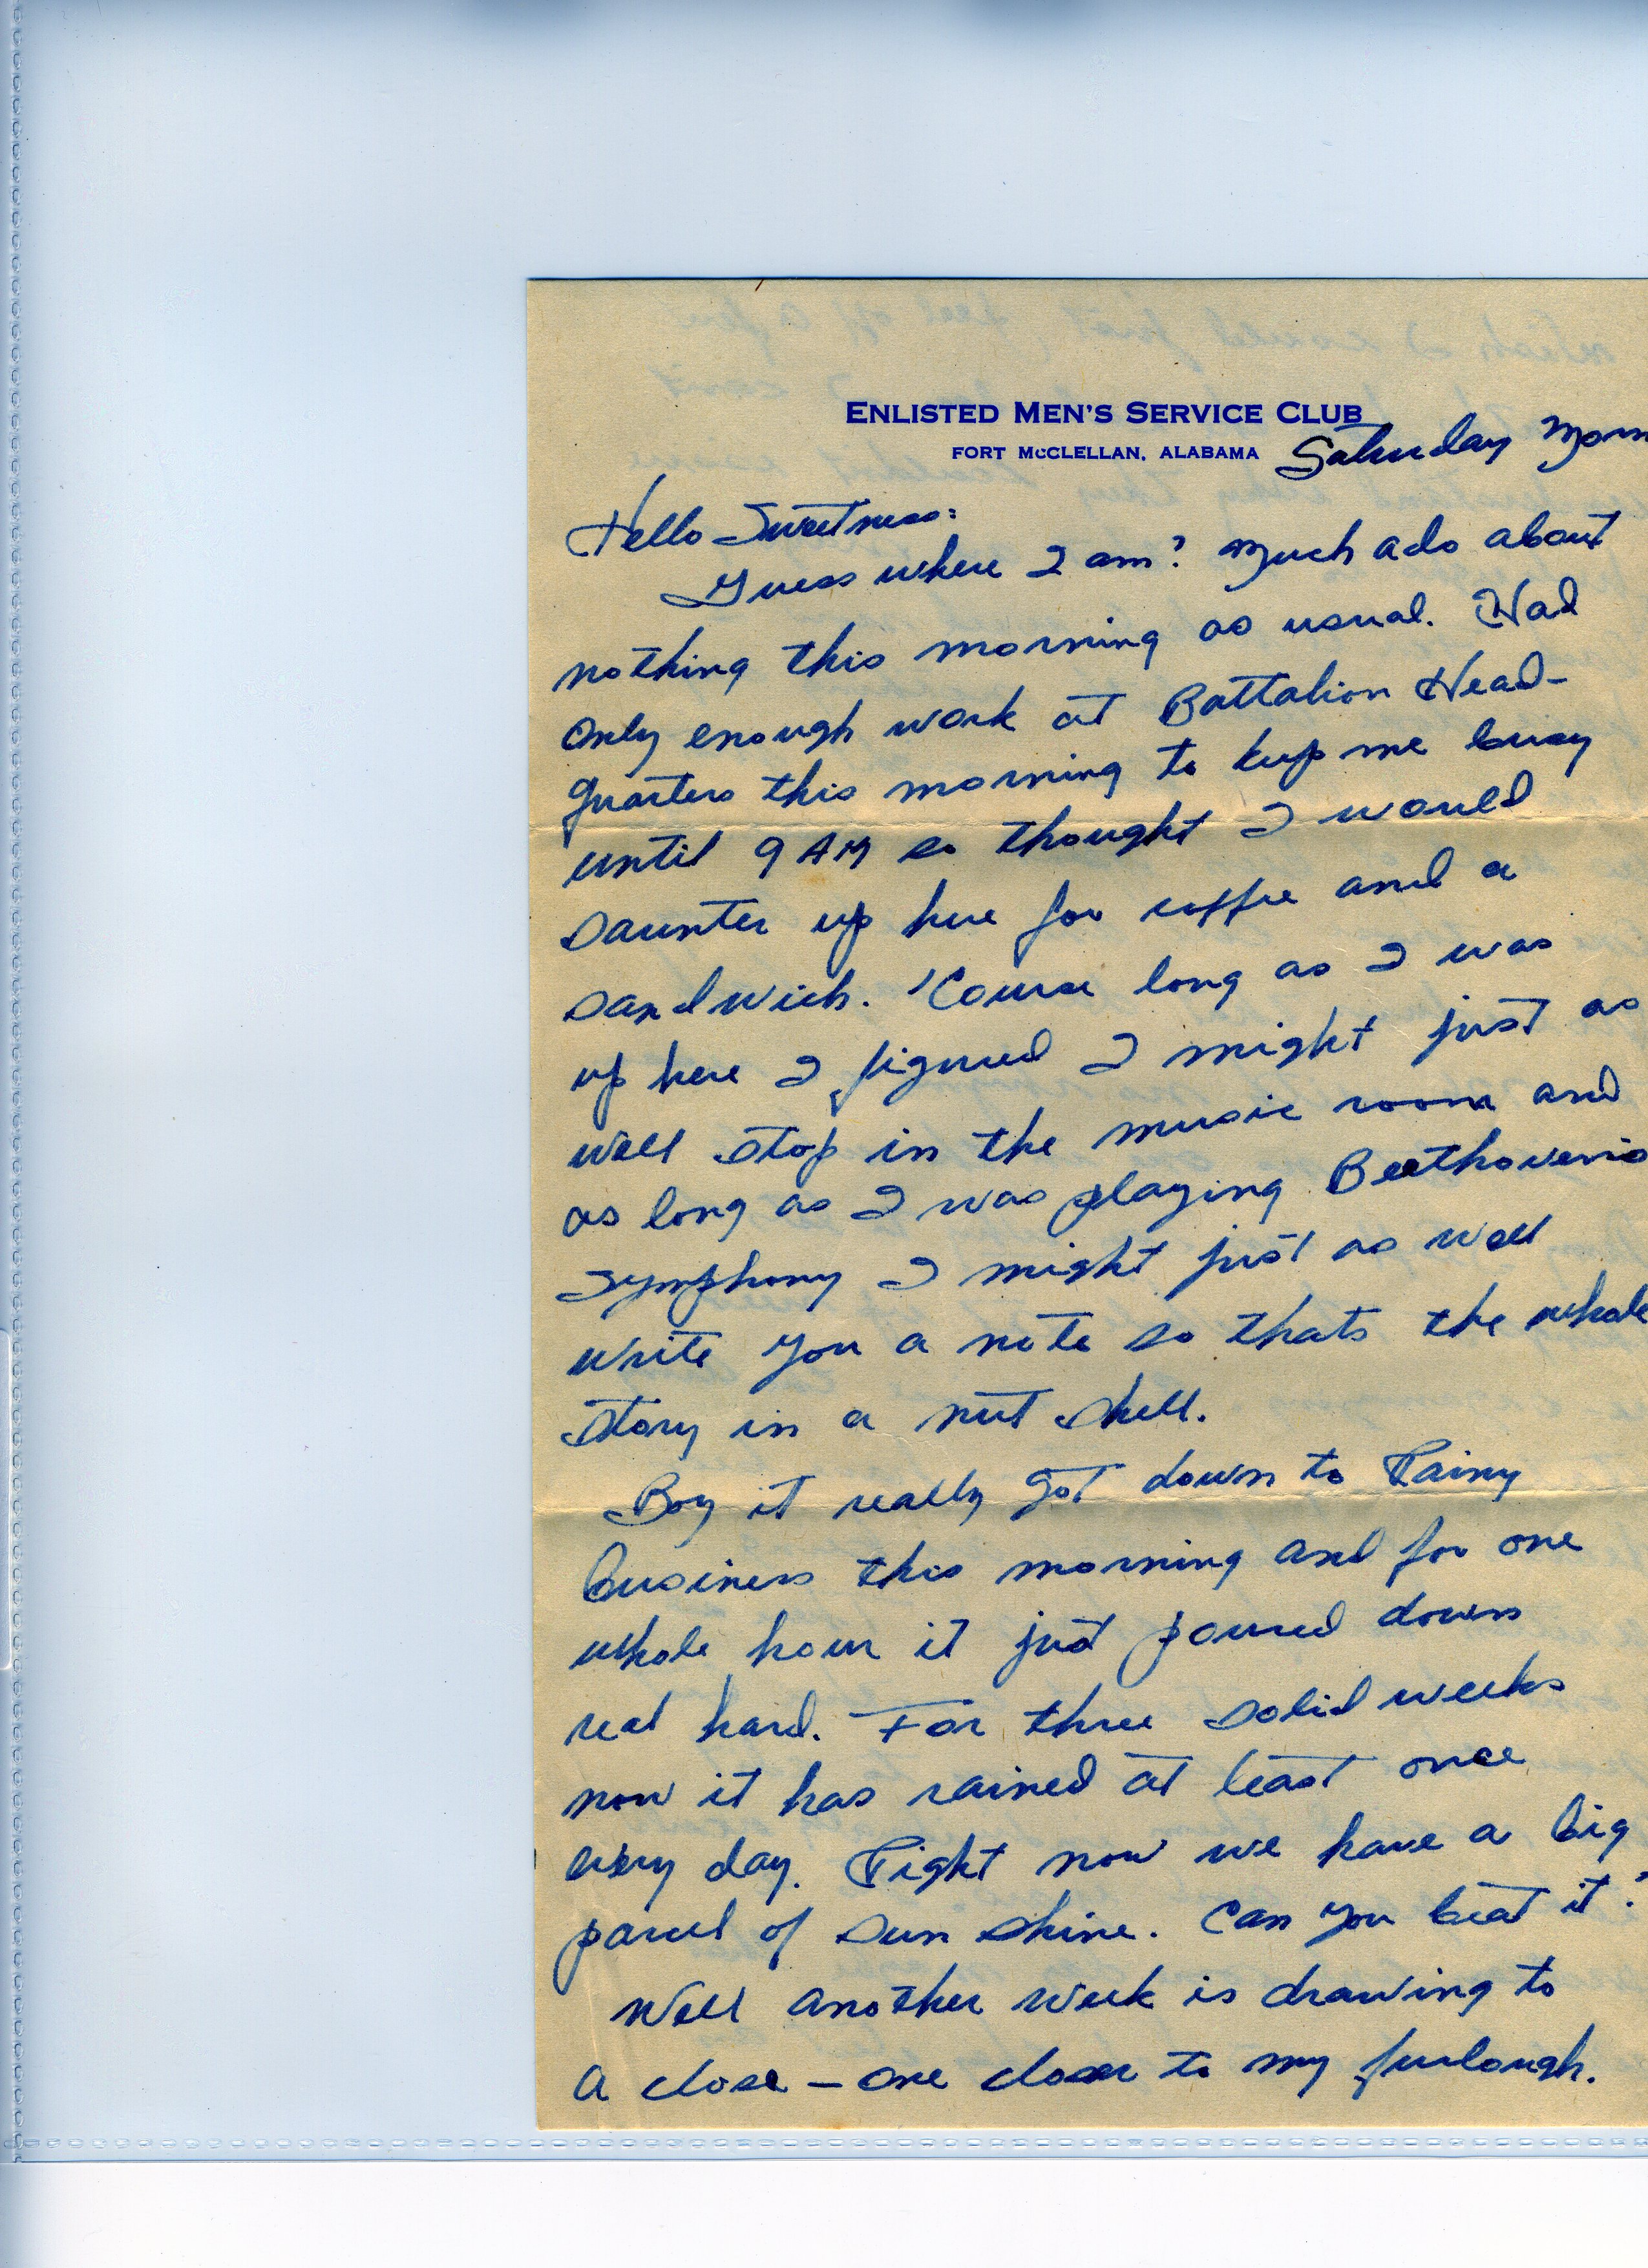 ENLISTED MEN'S SERVICE CLUB
FORT McCLELLAN, ALABAMA Saturday Morn
Hello Sweetness:
Guess where I am? Much ado about
nothing this morning as usual. Had
only enough work at Battalion Head-
quarters this morning to keep me busy
until 9 AM so thought I would
saunter up here for coffee and a
sandwich. 'Course long as I was
up here I figured I might just as
well stop in the music room and
as long as I was playing Beethovens
symphony I might just as well
write you a note so thats the whole
story in a nut shell.
Boy it really got down to Rainy
business this morning and for one
whole hour it just poured down
real hard. For three solid weeks
now it has rained at least once
every day. Right now we have a big
parcel of sun shine. Can you beat it?
Well another week is drawing to
a close – one closer to my furlough.